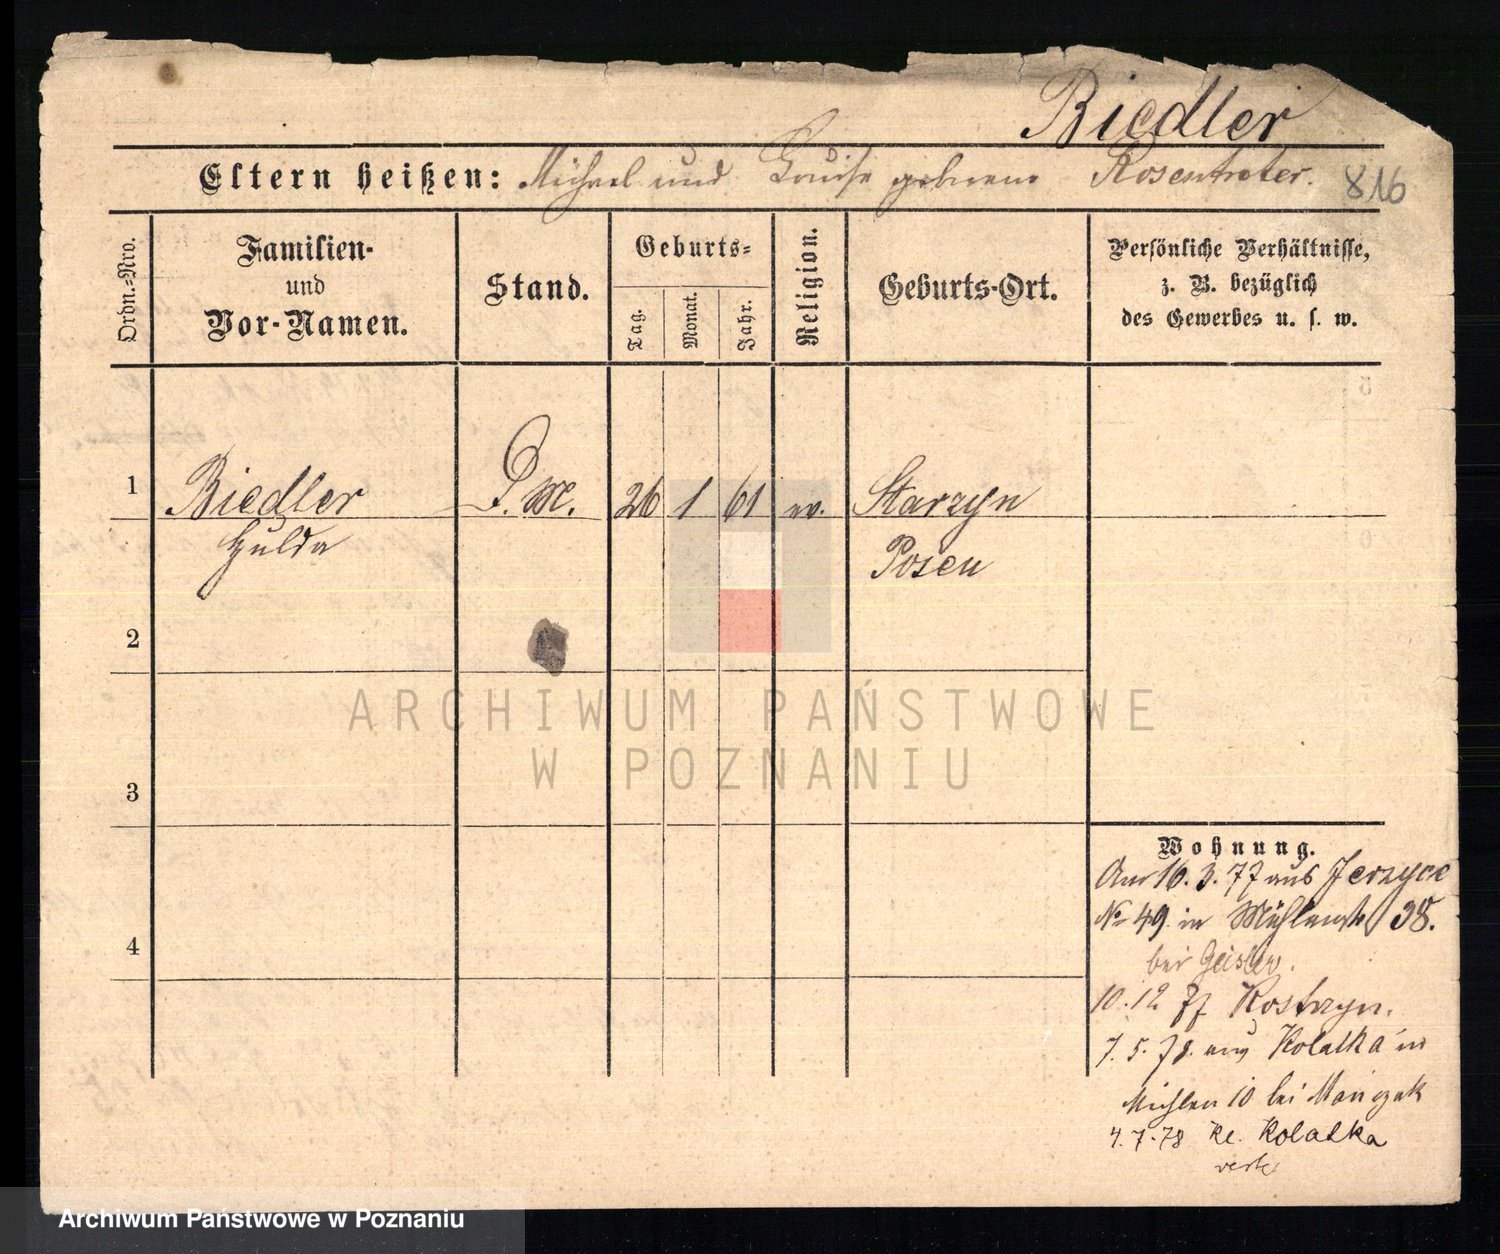 Biedler
Eltern heißen: Michael und Louise geborene Rosentreter.
816
Ordn.-Nro.
Familien-
und
Vor-Namen.
Stand.
Geburts-
Tag.
Monat.
Jahr.
Religion.
Geburts-Ort.
Persönliche Verhältnisse,
z. B. bezüglich
des Gewerbes u. s. w.
1
Biedler
Hulda
D. M.
26
1
61
ev.
Starzyn
Posen
2
3
4
Wohnung.
Am 16. 3. 77 aus Jerzyce
No 49 in Mühlenstr 38.
bei Geisler.
10. 12 77 Kostrzyn.
7. 5. 78. aus Kolatka in
Mühlen 10 bei
4. 7. 78 Kl. Kolatka
ARCHIWUM PAŃSTWOWE
W POZNANIU
Archiwum Państwowe w Poznaniu